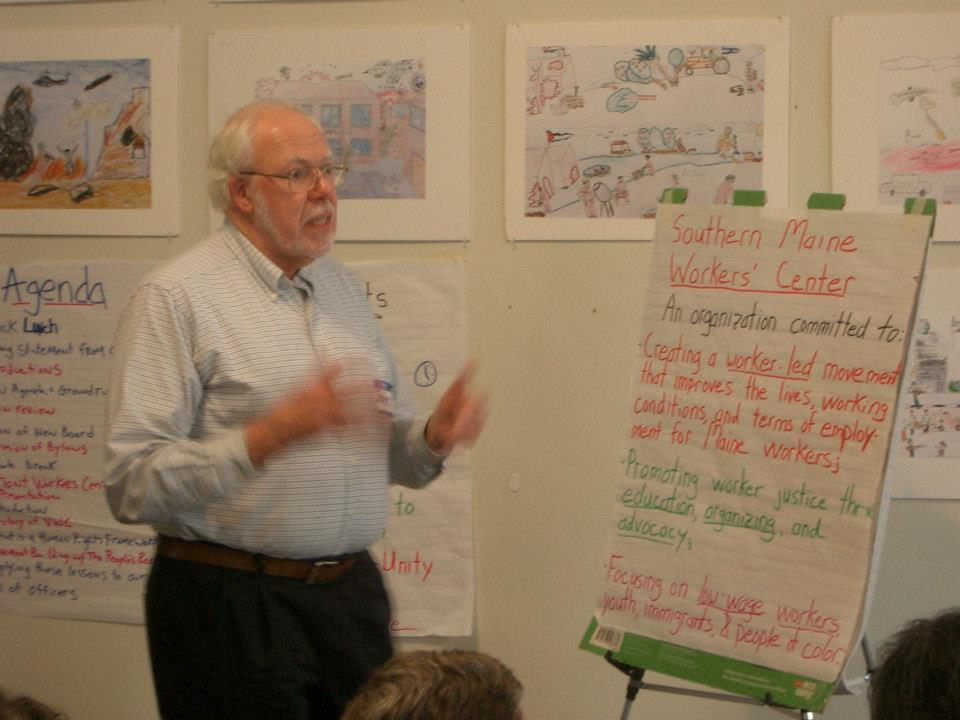 Agenda
Lunch
Statement from
Agenda + Ground ru
review
of New Board
of Bylaws
break
Workers Cen
Presentation
story of VWC
at is a Human Rights Framework
ement Building w/ The People's Rec
plying these lessons to our
of officers
ts
①
to
Unity
Southern Maine
Workers' Center
An organization committed to:
·Creating a worker-led movement
that improves the lives, working
conditions, and terms of employ-
ment for Maine workers;
·Promoting worker justice thru
education, organizing, and
advocacy;
·Focusing on low-wage workers,
youth, immigrants, & people of color.